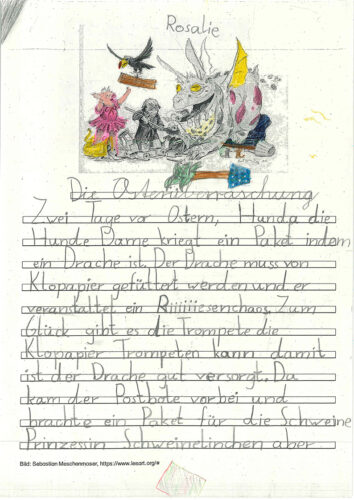 Rosalie
Die Osterüberraschung
Zwei Tage vor Ostern, Hunda die
Hunde Dame kriegt ein Paket indem
ein Drache ist. Der Drache muss von
Klopapier gefüttert werden und er
veranstaltet ein Riiiiiiiesenchaos. Zum
Glück gibt es die Trompete die
Klopapier Trompeten kann damit
ist der Drache gut versorgt. Da
kam der Postbote vorbei und
brachte ein Paket für die Schweine
Prinzessin Schweinelinchen aber
Bild: Sebastian Meschenmoser, https://www.lesart.org/#